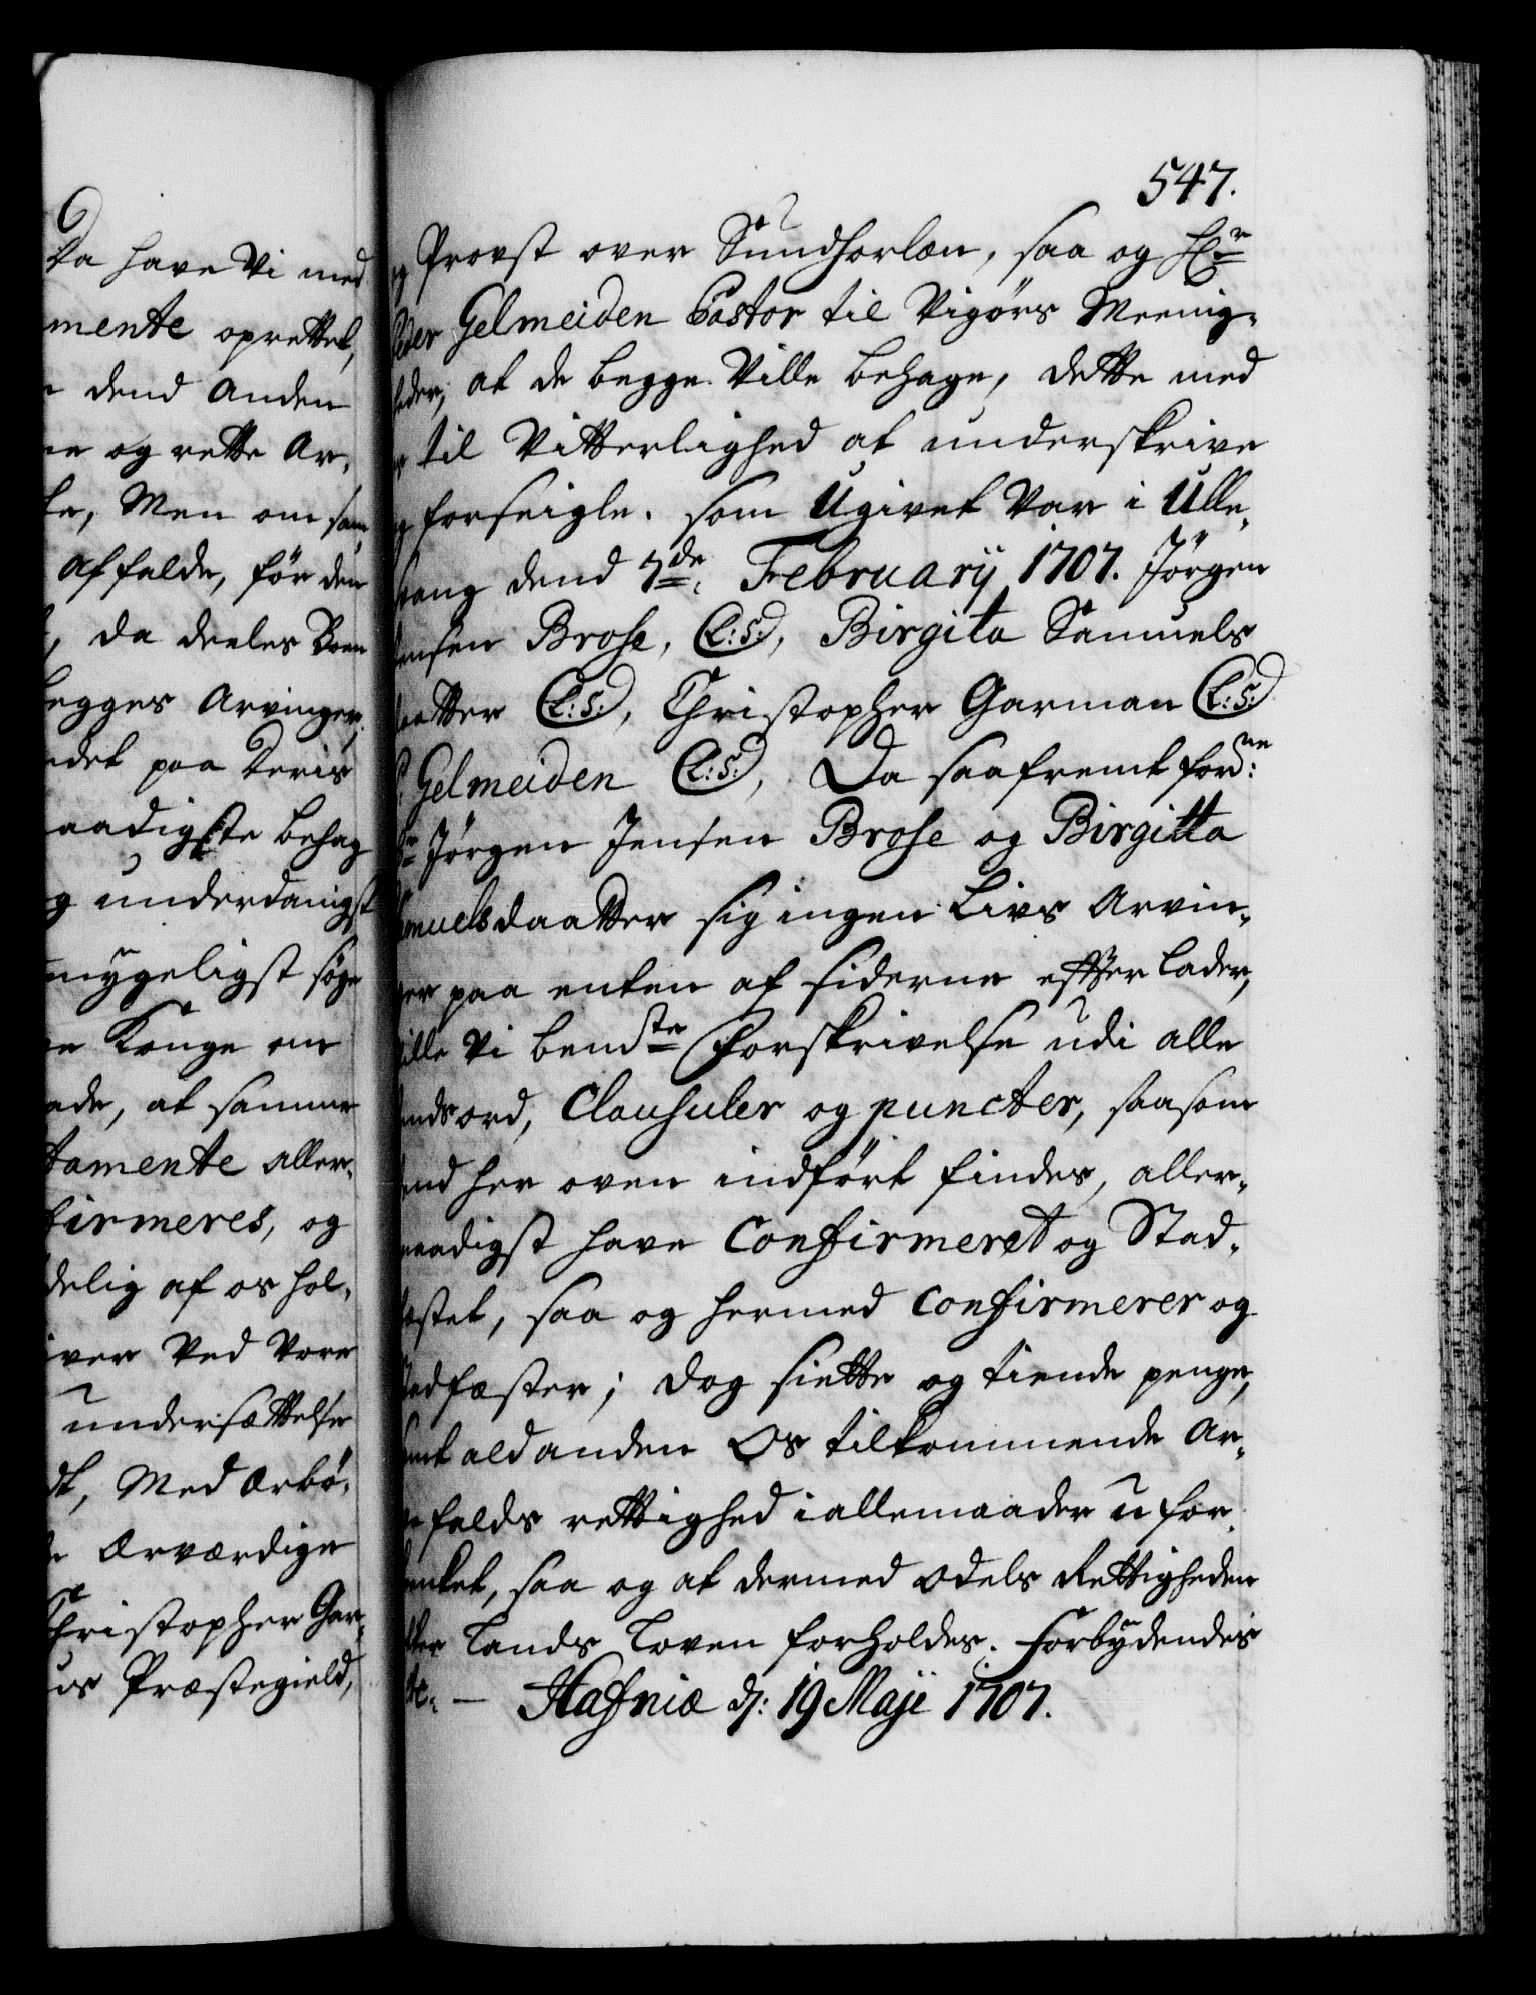 Da have Vi med
mente oprettet,
dend Anden
og rette Ar-
Men om sam
affalde, før den
da deeles Boen
begges Arvinger,
paa Deris
naadigste behag
underdanigst
ydmygeligst søge
Konge om
at samme
tamente aller-
firmeres, og
af os hol-
Ved Vore
undersættelse
Med Ærbø-
Ærværdige
Christopher Gar-
Præstegield,
547.
Provst over Sundhorlen, saa og Hr
Peder Gelmeiden Pastor til Vigørs Meenig-
heder, at de begge Ville behage, dette med
til Vitterlighed at underskrive
og forseigle. som Ugivet Var i Ulle-
svang dend 7de Februarij 1707. Jørgen
Jensen Brose, (L:S:), Birgita Samuels
daatter (L:S:), Christopher Garman (L:S:)
P: Gelmeiden (L:S:), Da saafremt forne:
Hr Jørgen Jensen Brose og Birgitta
Samuelsdaatter sig ingen Livs Arvin-
ger paa enten af siderne efterlader,
Ville Vi bemte Forskrivelse udi alle
dends ord, Clausuler og puncter, saasom
dend her oven indført findes, aller-
naadigst have Confirmeret og Stad-
fæstet, saa og hermed Confirmerer og
Stadfæster; dog siette og tiende penge,
samt ald anden Os tilkommende Ar-
vefalds rettighed i allemaader ufor-
krenket, saa og at dermed Odels Rettigheden
efter Lands Loven forholdes. Forbydendes
etc. — Hafniæ d: 19 Maji 1707.